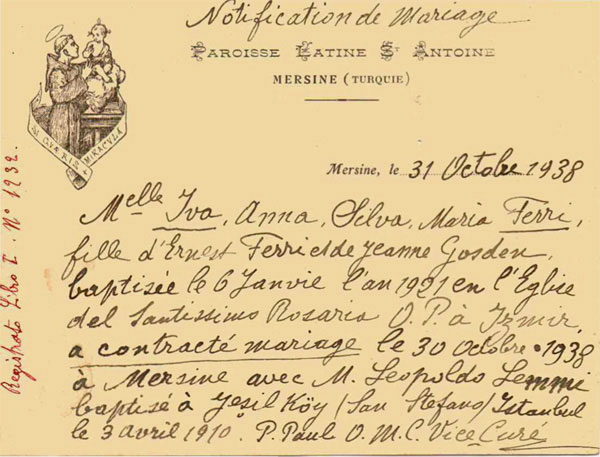 Notification de Mariage
PAROISSE LATINE ST ANTOINE
MERSINE (TURQUIE)
SI QVÆRIS MIRACVLA
Mersine, le 31 Octobre 1938
Melle Iva, Anna, Silva, Maria Ferri,
fille d'Ernest Ferri et de Jeanne Gosden,
baptisée le 6 Janvie l'an 1921 en l'Eglise
del Santissimo Rosario O.P. à Izmir,
a contracté mariage le 30 Octobre 1938
à Mersine avec M. Leopoldo Lemmi
baptisé à Jesil Köy (San Stefano) Istanbul
le 3 avril 1910. P. Paul O.M.C. Vice Curé
Registrato Libro I. No 1232.